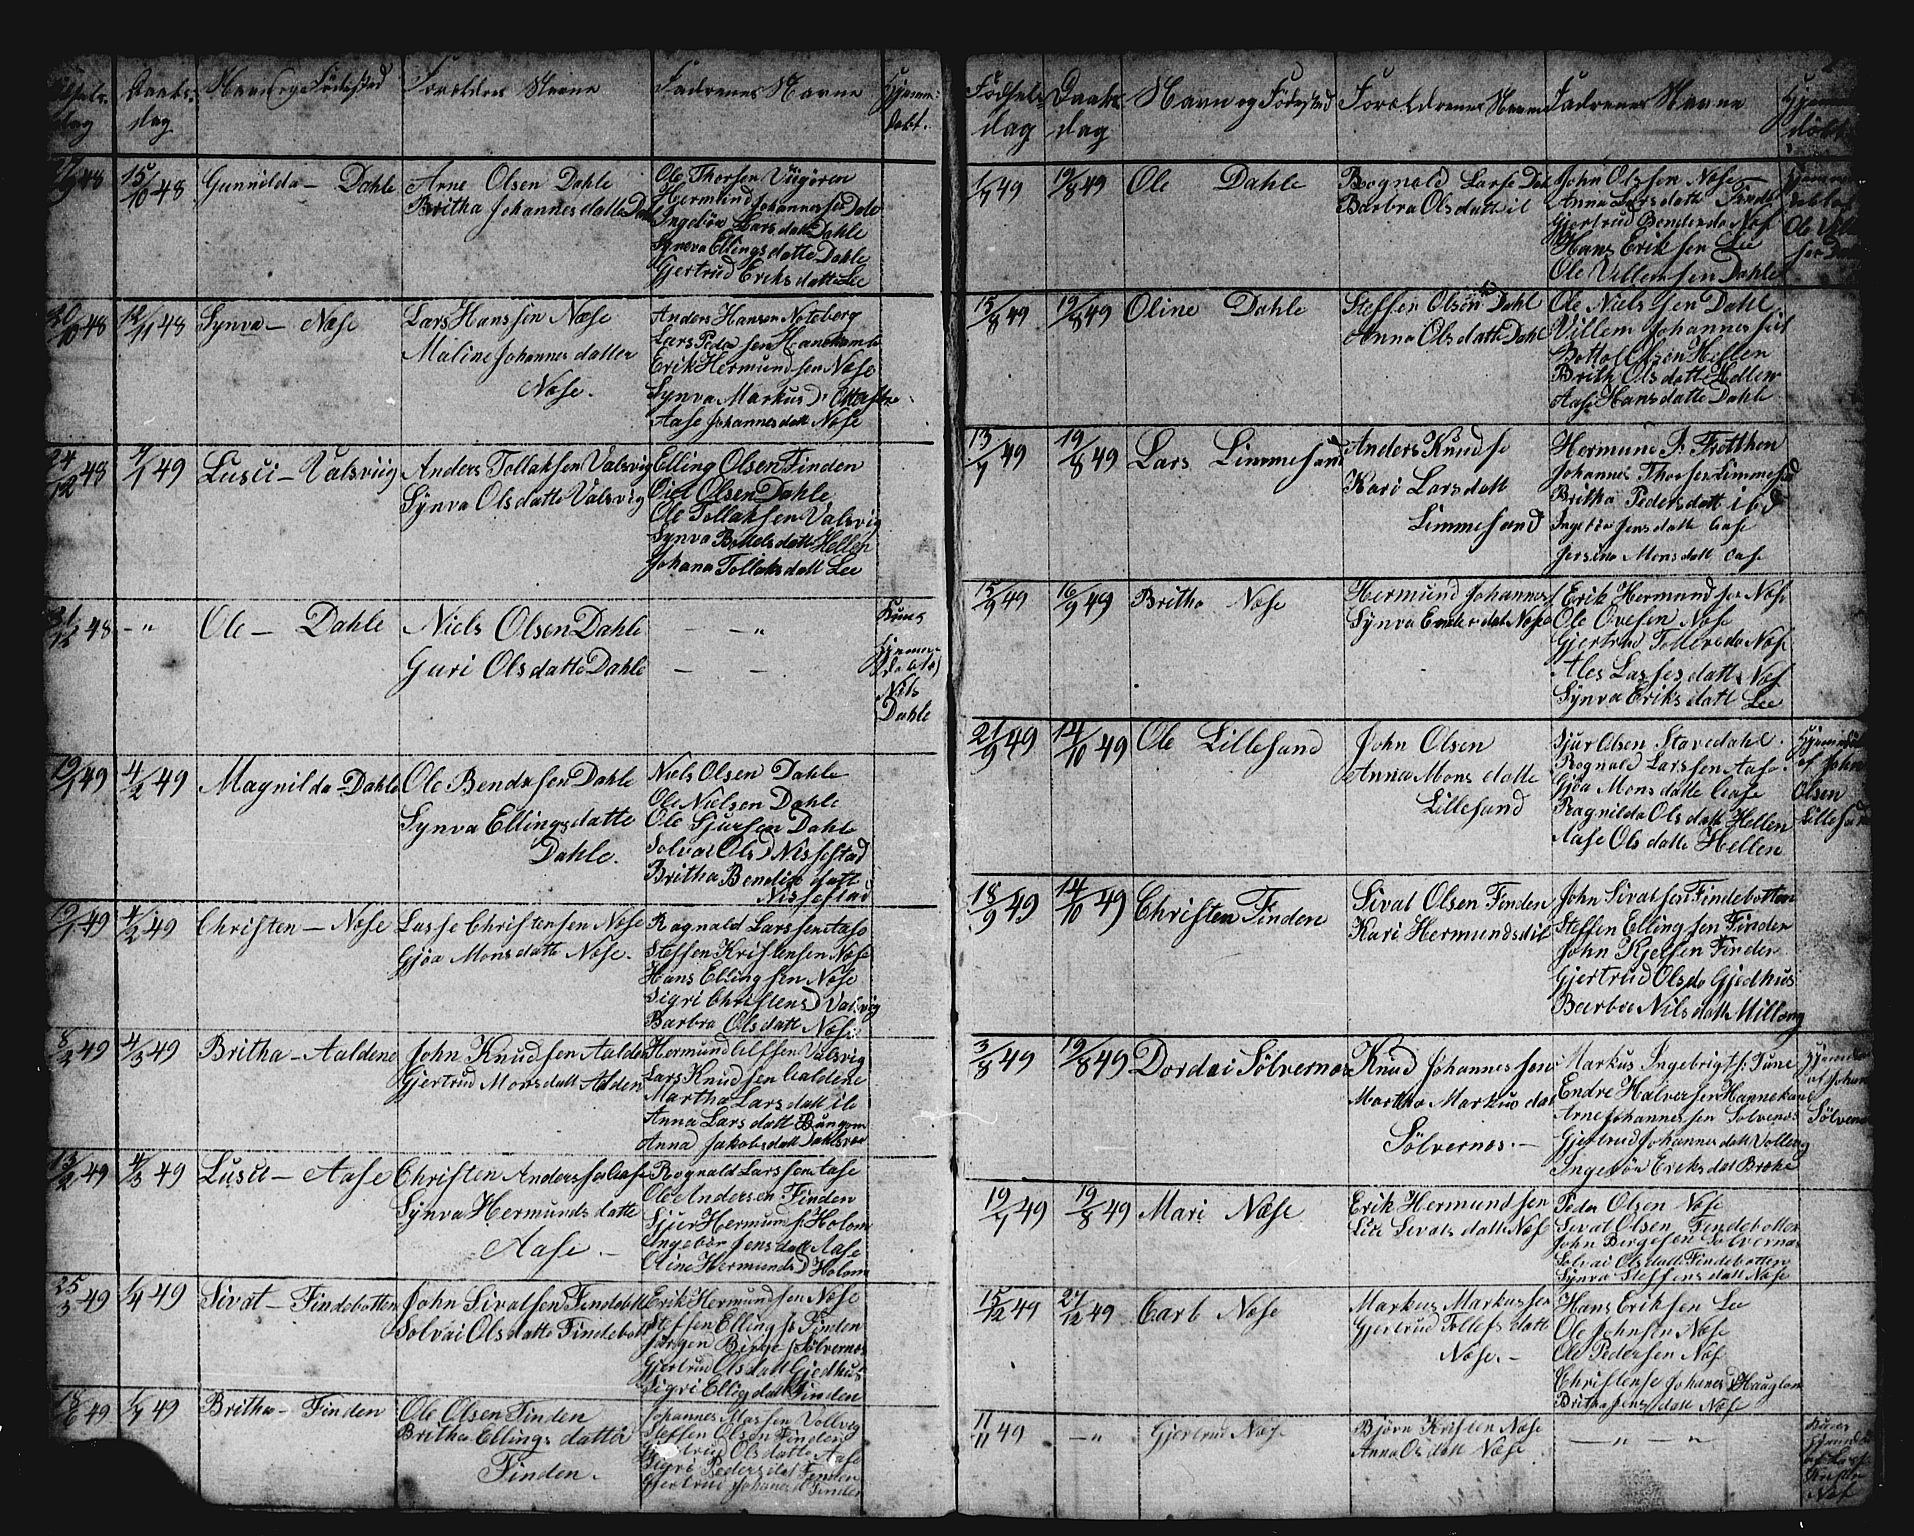 Daabs- Navn og Fødested Forældres Navne Fadrenes Navne Hjemme-
dag dag døbt.
27/9 48 15/10 48 Gunnilda - Dahle Arne Olsen Dahle
Britha Johannesdatte Dale
Ole Thorsen
Hermund Johannessen Dale
Ingebör Larsdatt Dahle
Synva Ellingsdatte Dahle
Gjertrud Eriksdatte Lee
20/10 48 12/11 48 Synva - Næse Lars Hanssen Næse
Maline Johannesdatter
Næse.
Anders Hansen Noteberg
Lars Peder sen
Erik Hermundsen Næse
Synva Markus D.
Aase Johannesdatt Næse
24/12 48 7/1 49 Lusci - Valsviig Anders Tollaksen Valsvig
Synva Olsdatte Valsvig
Elling Olsen Finden
Olsen Dahle
Ole Tollaksen Valsvig
Synva Hellen
Johana Tollaksdatt Lee
31/12 48 - " Ole - Dahle Niels Olsen Dahle — — "
Guri Olsdatte Dahle — —
Hjemme
døbt af
Nils
Dahle
19/1 49 4/2 49 Magnilda - Dahle Ole Bendixsen Dahle
Synva Ellingsdatte
Dahle.
Niels Olsen Dahle
Ole Nielsen Dahle
Ole Sjursen Dahle
Solvai Ols D Nissestad
Britha Bendix datt
Nissestad
19/1 49 4/2 49 Christen - Næse Lasse Christensen Næse
Gjöa Monsdatte Næse.
Ragnald Larssen Aase
Steffen Kristensen Næse
Hans Ellingsen Næse
Sigri Christens D Valsvig
Barbra Olsdatt Næse
8/2 49 4/3 49 Britha - Aaldene John Knudsen Aalde
Gjertrud Monsdatt Aalden
Hermund Alfsen Valsvig
Lars Knudsen Aaldene
Martha Larsdatt
Anna Larsdatt
Anna Jakobsdatt
13/2 49 4/3 49 Lusci - Aase Christen Anderssen Aase
Synva Hermundsdatte
Aase -
Rognald Larssen Aase
Ole Andersen Finden
Sjur Hermunds. Holom
Ingebör Jensdatt Aase
Oline Hermunds D Holom
25/3 49 1/4 49 Sivat - Findebotten John Sivatsen Findebott
Solvai Olsdatte Findebott
Erik Hermundsen Næse
Steffen Elling s. Finden
Jørgen Sølvernes
Gjertrud Olsdatt Gjedhus
Sigri Ellingdatt Finden
18/6 49 1/7 49 Britha - Finden Ole Olsen Finden
Britha Ellingsdatter
Finden.
Johannes Vollvig
Steffen Olsen Finden
Gjertrud Olsdatte Aase
Sigri Pedersdat Finden
Gjertrud Johanesd Finden
Fødsels- Daabs- Navn og Fødested Foroldrenes Navne Fadrenes Navne Hjemme
dag dag døbt
1/7 49 19/8 49 Ole Dahle Rognald Larse Dal
Barbra Olsdatt
John Olssen Næse -
Anna Larsdatt Finde
Gjertrud Næs
Hans Eriksen Lee
Ole Villemsen Dahle
15/8 49 19/8 49 Oline Dahle Steffen Olsen Dahl
Anna Olsdatte Dahl
Ole Nielssen Dahl
Villem Johannes
Bottol Olsen Hellen
Brith Olsdatte Hellen
Aase Hansdatte Dahle
13/7 49 19/8 49 Lars Limmesand Anders Knudse
Kari Larsdatt
Limmesand
Hermund P. Fretthen
Johannes Thorsen Limmesad
Britha Pedersdatt ibd
Ingebör Jensdatt Aase
Monsdatt Aase
15/9 49 16/9 49 Britha Næse Hermund Johannes
Synva Næse
Erik Hermundsen Næse
Ole Ovesen Næse
Gjertrud Næse
Ales Lassesdatt Næs
Synva Eriksdatt Lee
21/9 49 14/10 49 Ole Lillesand John Olsen
Anna Monsdatte
Lillesand
Sjur Olsen Stavedahl.
Rognald Larssen Aase
Gjöa Monsdatte Aase
Ragnilda Olsdatt Hellen
Aase Olsdatte Hellen
af John
Olsen
Lillesand
18/9 49 14/10 49 Christen Finden Sivat Olsen Finden
Kari Hermundsd
John Sivatsen Findebotten
Steffen Ellingsen Finden
John Kjelsen Finden
Gjertrud Olsda Gjedhus
Barbra Nilsdatt
3/8 49 19/8 49 Dordai Sølvernæs Knud Johannessen
Martha Markusdat
Sølvernæs. -
Markus Ingebrigt s. Tune
Endre Halversen
Arne Johannessen Sølvernes
Gjertrud Johannesdatt
Ingebör Eriksdat
af Johan
Sølvernes
19/7 49 19/8 49 Mari Næse Erik Hermundsen
Sivatsdatt Næs
Peder Olsen Næse
Sivat Olsen Findebotten
John Bergesen Sølvernæs
Solvai Olsdatt Findebotten
Synva Steffensdatt Næse
15/12 49 27/12 49 Carl Næse Markus Markussen
Gjertrud Tollefsdatt
Næse. -
Hans Eriksen Lee
Ole Johnsen Næse
Ole Pedersen Næs
Christense Johanesd Hauglom
Britha Jensdatt Næse
11/11 49 — " Gjertrud Næse Bjørn Kristen Næse
Anna Olsdatt Næse
— " — "
Næs